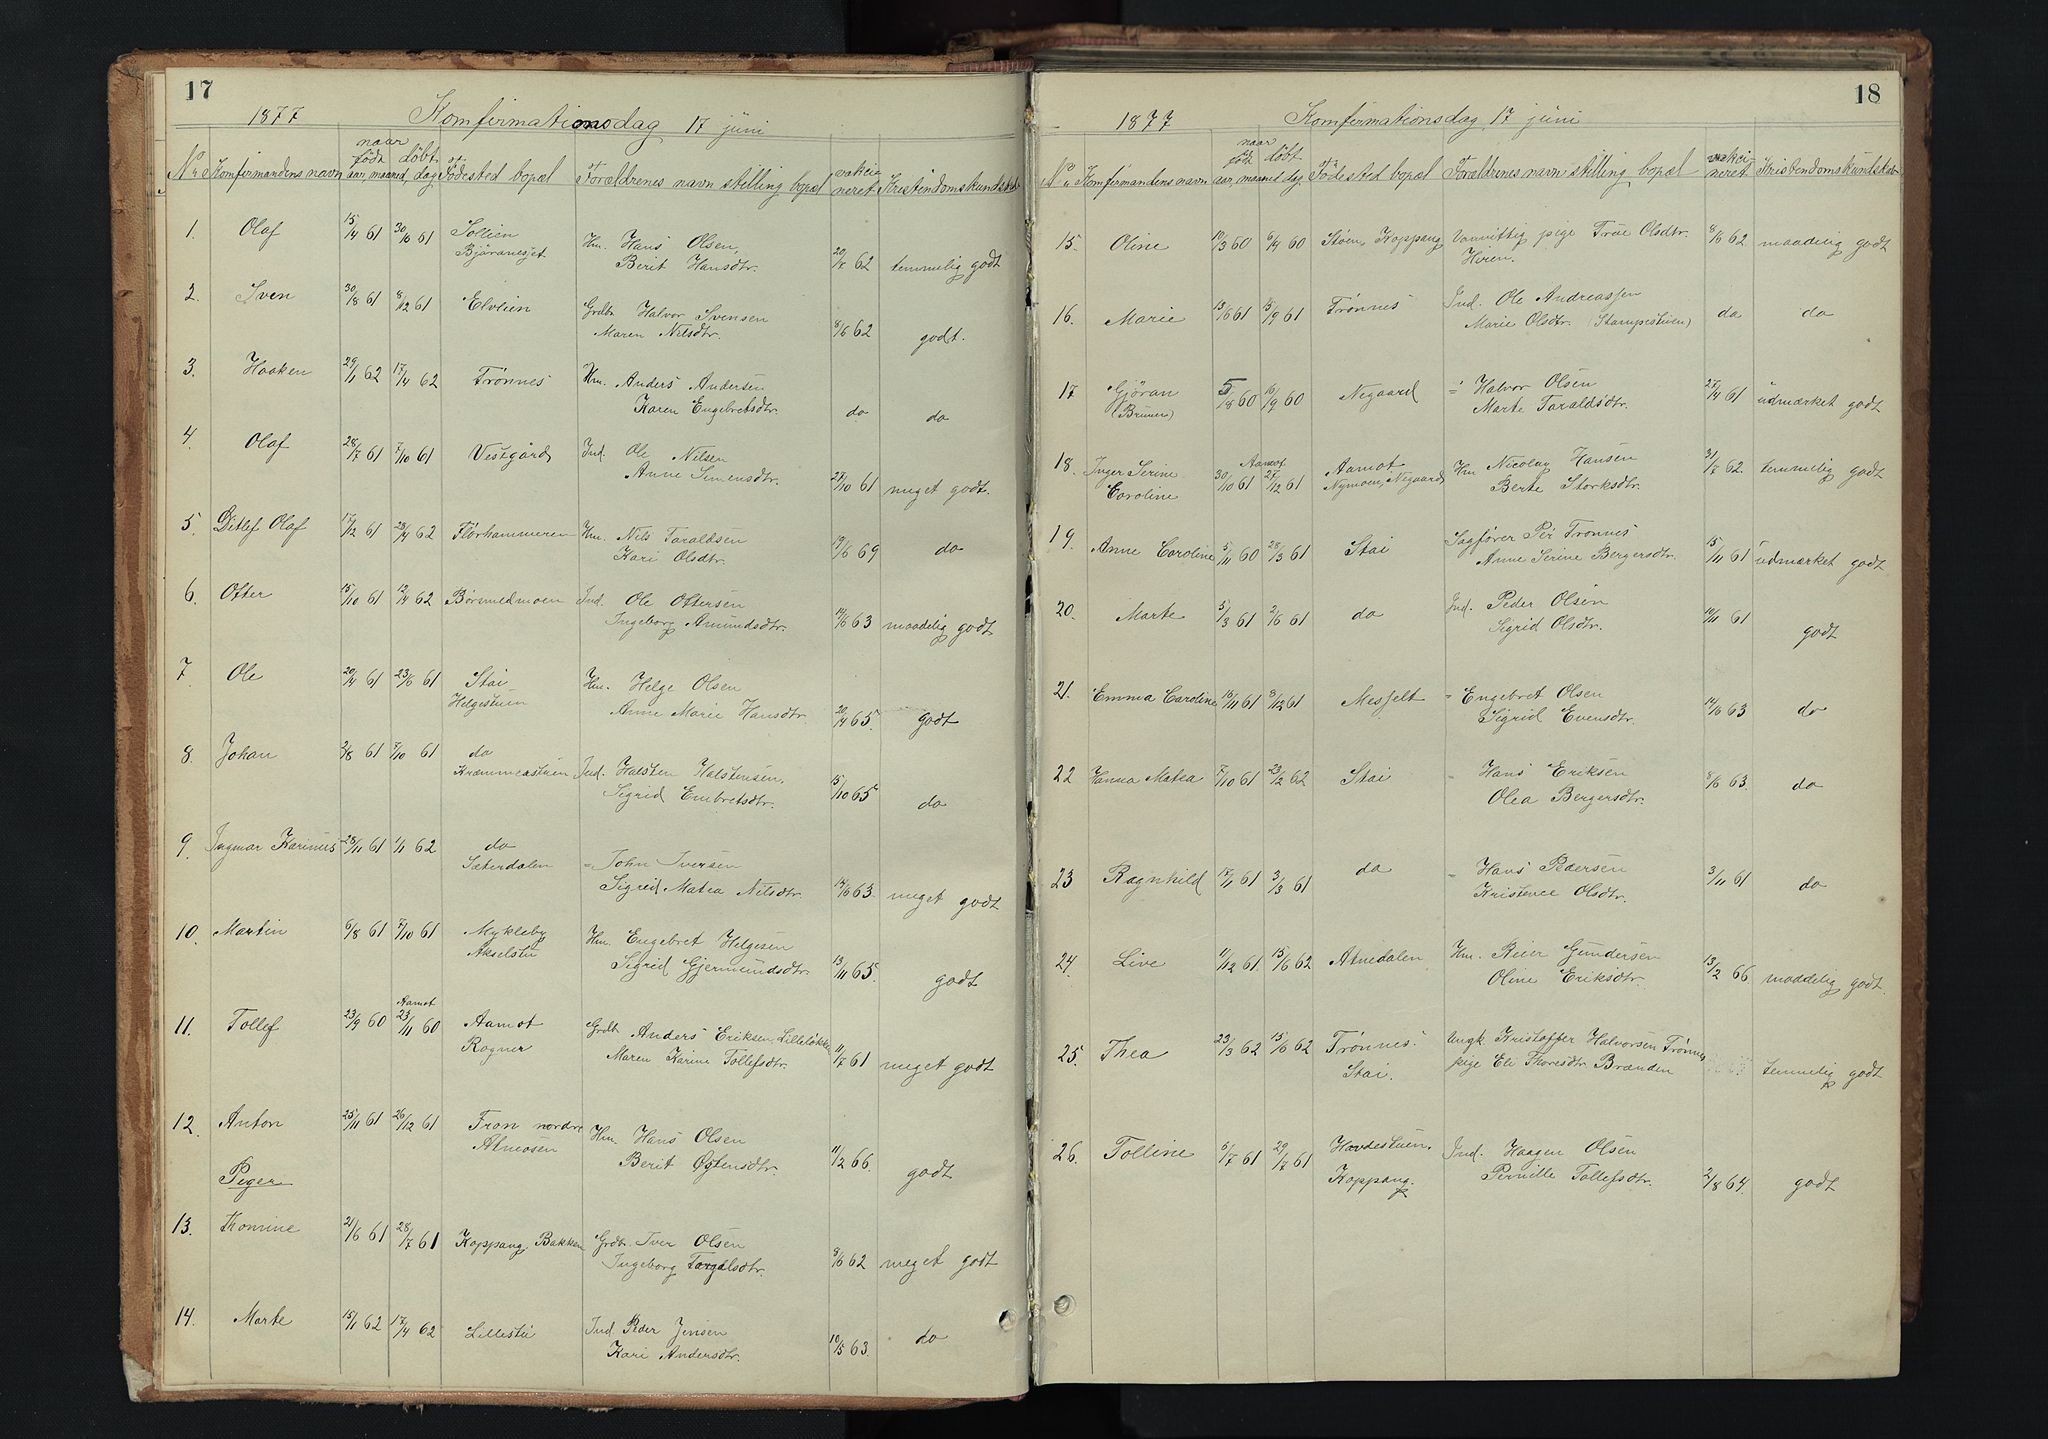 17
1877 Komfirmationsdag 17 juni
naar
No Komfirmandens navn født døbt aar, maaned, dag og Fødested bopæl Forældrenes navn stilling bopæl vakcineret Kristendomskundskab
1. Olaf 15/4 61 30/6 61 Sollien Hm. Hans Olsen
Bjøranesset Berit Hansdtr. 20/7 62 temmelig godt
2. Sven 30/8 61 8/12 61 Elvlien Grdbr Halvor Svensen
Maren Nilsdtr. 8/6 62 godt.
3. Haaken 29/1 62 17/4 62 Trønnes Hm. Anders Andersen
Karen Engebretsdtr. do do
4. Olaf 28/7 61 7/10 61 Vestgård Ind. Ole Nilsen
Anne Simensdtr. 27/10 61 meget godt.
5. Ditlef Olaf 17/12 61 23/4 62 Flørhammeren Hm. Nils Taraldsen
Kari Olsdtr. 19/6 69 do
6. Otter 15/10 61 12/4 62 Børsmedmoen Ind. Ole Ottersen
Ingeborg Amundsdtr. 14/6 63 maadelig godt
7. Ole 20/4 61 23/6 61 Stai Hm. Helge Olsen
Helgestuen Anne Marie Hansdtr. 20/4 65. godt
8. Johan 2/8 61 7/10 61 do
Kræmmerstuen Ind. Halsten Halstensen,
Sigrid Embretsdtr. 15/10 65 do
9. Ingmar Karinus 23/11 61 1/1 62 do
Sæterdalen = John Iversen
Sigrid Matea Nilsdtr. 14/6 63. meget godt
10. Martin 6/8 61 7/10 61 Mykleby Hm. Engebret Helgesen
Akselstu Sigrid Gjermundsdtr. 13/11 65. godt
Aamot
11. Tollef 23/9 60 23/11 60 Aamot Grdbr Anders Eriksen, Lilleløkken
Ragner Maren Karine Tollefsdtr. 11/7 61 meget godt
12. Anton 25/11 61 26/12 61 Fron nordre Hm. Hans Olsen
Atneosen Berit Østensdtr. 11/2 66. godt
Piger
13. Thomine 21/6 61 28/7 61 Koppang, Bakken Grdbr. Iver Olsen
Ingeborg Targalsdtr. 8/6 62 meget godt
14. Marte 15/1 62 17/4 62 Lillestu Ind. Peder Jensen
Kari Andersdtr. 10/5 63. do
18
1877 Komfirmationsdag, 17 juni
naar
No Komfirmandens navn født døbt aar, maaned dag. Fødested bopæl Forældrenes navn stilling bopæl vakcineret Kristendomskundskab
15. Oline 10/3 60 6/4 60 Støen, Koppang Vanvittig pige True Olsdtr. 8/6 62 maadelig godt
Hiren.
16. Marie 13/6 61 15/9 61 Trønnes Ind. Ole Andreassen
Marie Olsdtr. (Stampestuen) do do
17 Gjøran 5/8 60 16/9 60 Negaard = Halvor Olsen 27/4 61 udmærket godt
(Brunen) Marte Taraldsdtr.
Aamot
18. Inger Serine 30/10 61 27/12 61 Aamot Hm Nicolay Hansen 31/7 62. temmelig godt
Caroline Nymoen, Negaard Berte Storksdtr.
19. Anne Caroline 5/11 60 28/3 61 Stai Sagfører Per Trønnes
Anne Serine Bergersdtr. 15/11 61 udmærket godt
20. Marte 5/3 61 2/6 61 do Ind. Peder Olsen
Sigrid Olsdtr. 10/11 61 godt
21. Emma Caroline 16/11 61 8/12 61 Messelt = Engebret Olsen
Sigrid Evensdtr. 14/6 63 do
22 Hanna Matea 7/10 61 23/2 62 Stai = Hans Eriksen
Olea Bergersdtr. 8/6 63. do
23 Ragnhild 17/1 61 3/3 61 do = Hans Pedersen
Kristence Olsdtr. 3/11 61 do
24. Live 11/12 61 15/6 62 Atnedalen Hm. Reier Gundersen
Oline Eriksdtr. 13/2 66 maadelig godt.
25. Thea 23/3 62 15/6 62 Trønnes. Ungk Kristoffer Halvorsen Trønnes
Stai. pige Eli Thoresdtr Brænden temmelig godt
26. Tolline 6/7 61 29/7 61 Hovdestuen, Ind. Haagen Olsen
Koppang. Pernille Tollefsdtr. 2/8 64. godt